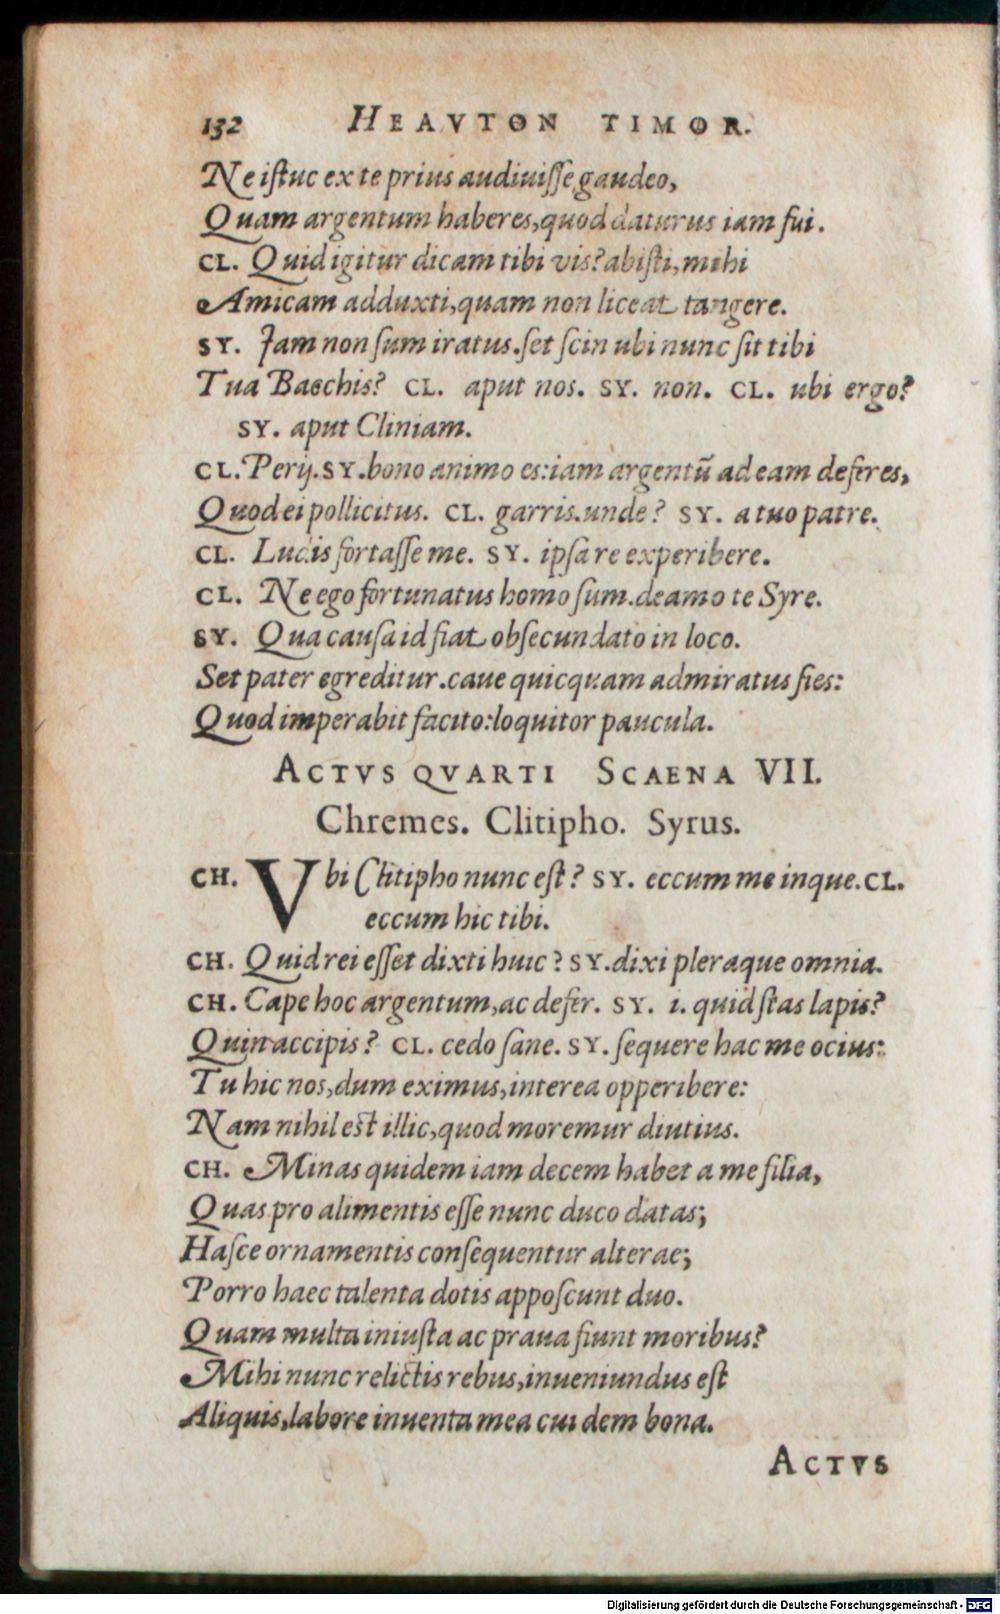 132 HEAVTON TIMOR.
Ne istuc ex te prius audiuisse gaudeo,
Quam argentum haberes, quod daturus iam fui.
CL. Quid igitur dicam tibi vis? abisti, mihi
Amicam adduxti, quam non liceat tangere.
SY. Jam non sum iratus. set scin ubi nunc sit tibi
Tua Bacchis? CL. aput nos. SY. non. CL. ubi ergo?
SY. aput Cliniam.
CL. Perij. SY. bono animo es: iam argentū ad eam deferes,
Quod ei pollicitus. CL. garris. unde? SY. a tuo patre.
CL. Ludis fortasse me. SY. ipsa re experibere.
CL. Ne ego fortunatus homo sum. deamo te Syre.
SY. Qua causa id fiat obsecundato in loco.
Set pater egreditur. caue quicquam admiratus fies:
Quod imperabit facito: loquitor paucula.
ACTVS QVARTI SCAENA VII.
Chremes. Clitipho. Syrus.
CH. Vbi Clitipho nunc est? SY. eccum me inque. CL.
eccum hic tibi.
CH. Quid rei esset dixti huic? SY. dixi pleraque omnia.
CH. Cape hoc argentum, ac defer. SY. i. quid stas lapis?
Quin accipis? CL. cedo sane. SY. sequere hac me ocius:
Tu hic nos, dum eximus, interea opperibere:
Nam nihil est illic, quod moremur diutius.
CH. Minas quidem iam decem habet a me filia,
Quas pro alimentis esse nunc duco datas;
Hasce ornamentis consequentur alterae;
Porro haec talenta dotis apposcunt duo.
Quam multa iniusta ac praua fiunt moribus?
Mihi nunc relictis rebus, inueniundus est
Aliquis, labore inuenta mea cui dem bona.
ACTVS
Digitalisierung gefördert durch die Deutsche Forschungsgemeinschaft - DFG